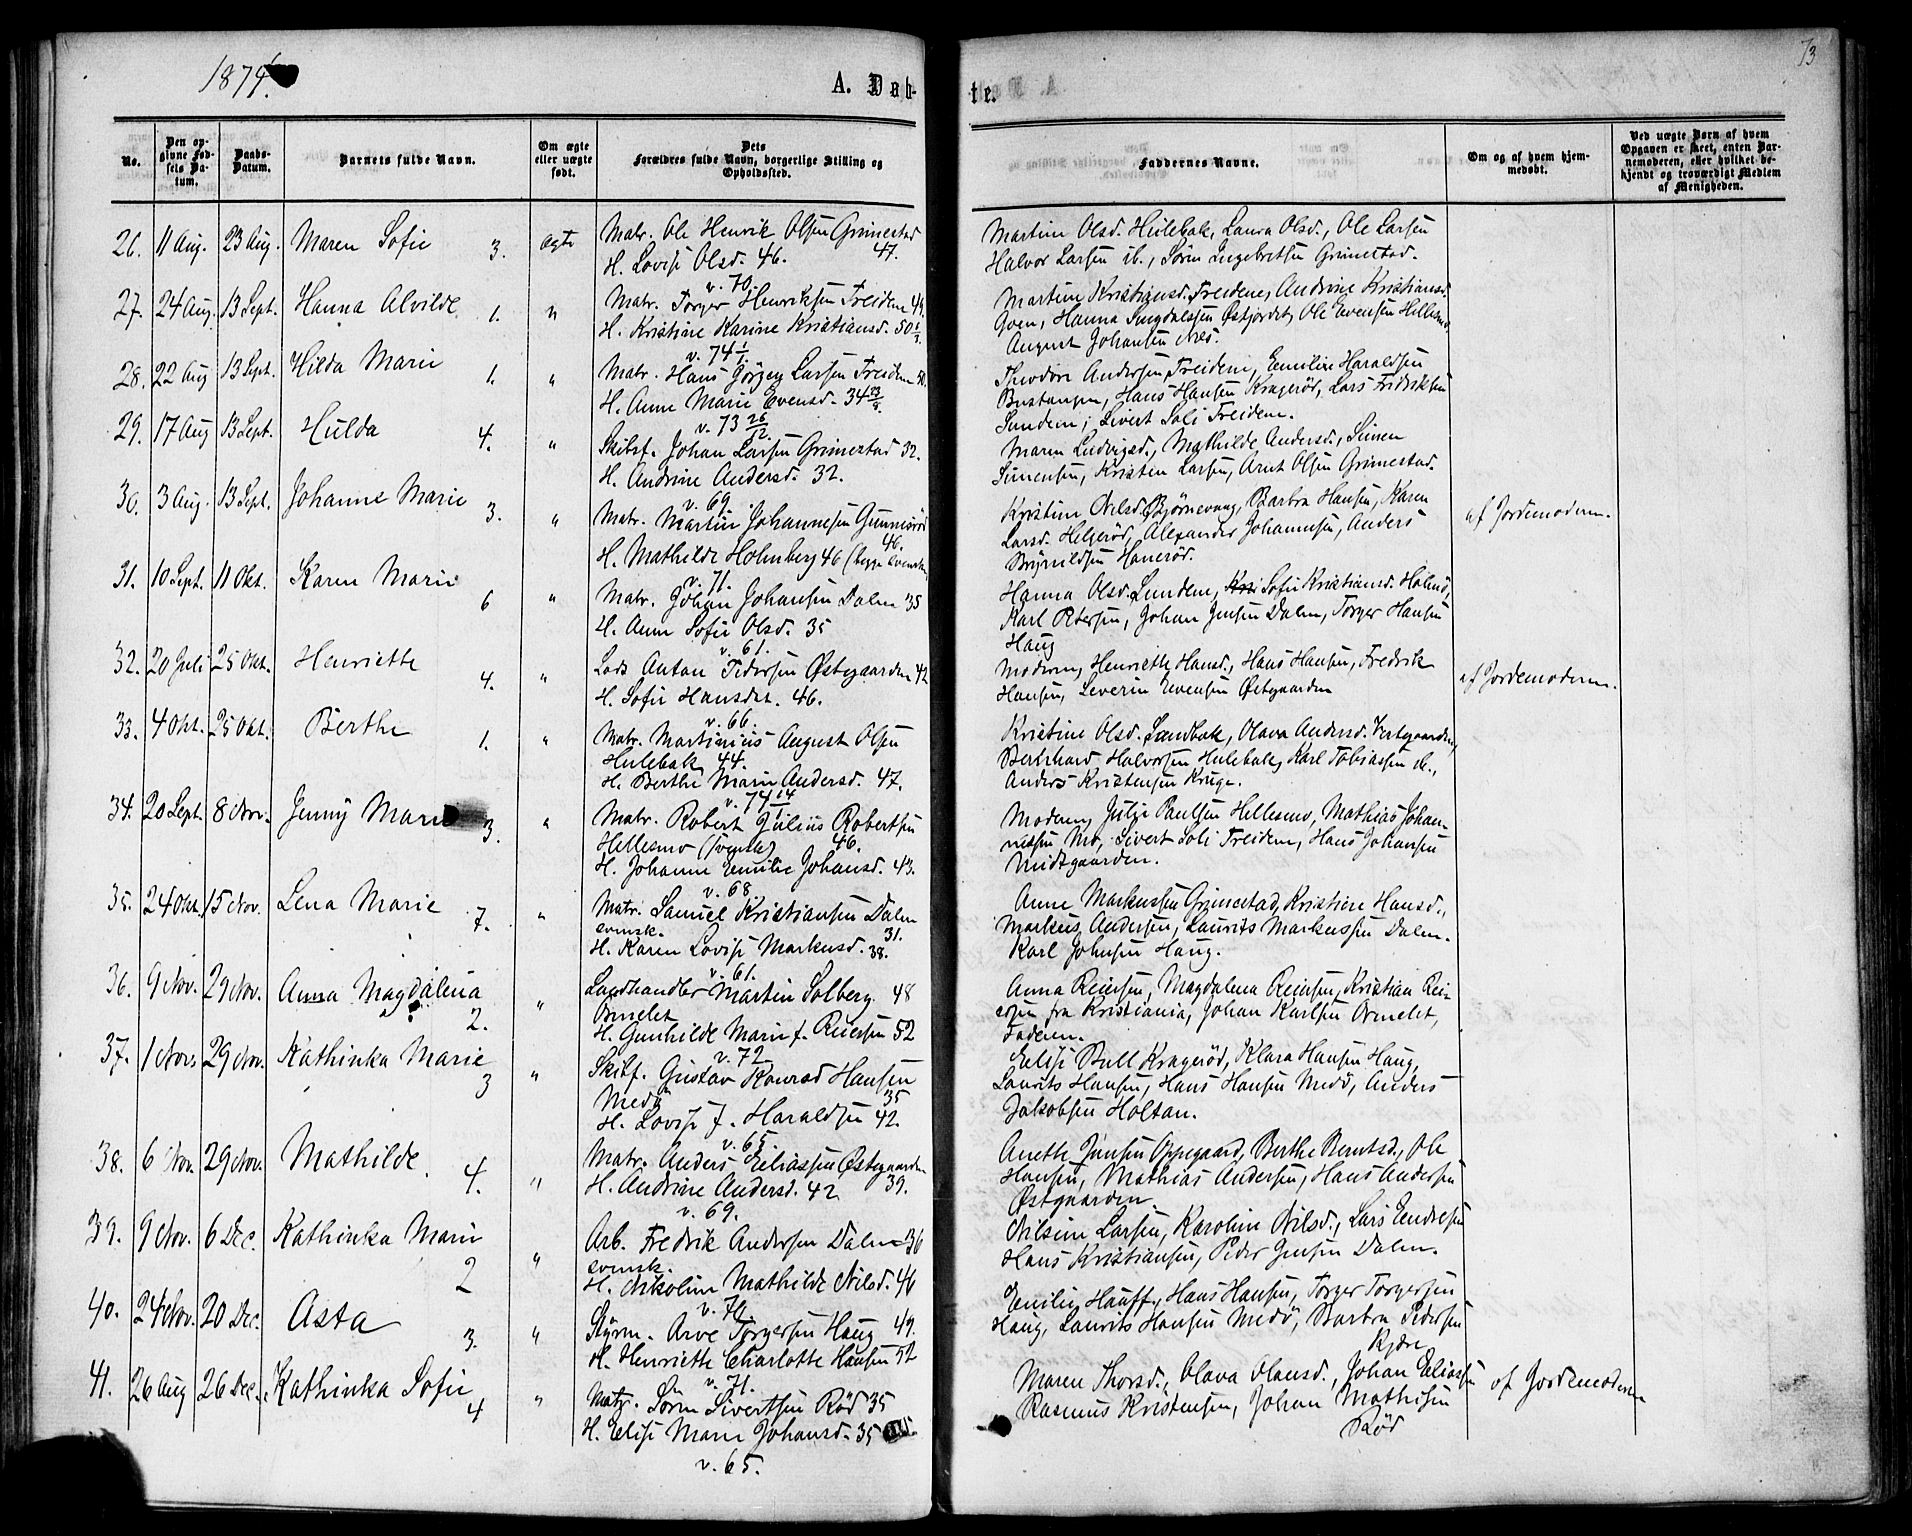 1874.
A. Døb-
te.
73
No.
Den op-
givne Fød-
sels Da-
tum.
Daabs-
Datum.
Barnets fulde Navn.
Om ægte
eller uægte
født.
Dets
Forældres fulde Navn, borgerlige Stilling og
Opholdssted.
Faddernes Navne.
Om og af hvem hjem-
medøbt.
Ved uægte Børn af hvem
Opgaven er skeet, enten Bar-
nemoderen, eller hvilket be-
kjendt og troværdigt Medlem
af Menigheden.
26. 11 Aug. 23 Aug. Maren Sofie 3. ægte
Matr. Ole Henrik Olsen Grimestad 47.
H. Lovise Olsd. 46.
v. 70.
Martine Olsd. Hulebak, Laura Olsd., Ole Larsen
Halvor Larsen ib., Søren Ingebretsen Grimestad.
27. 24 Aug. 13 Sept. Hanna Alvilde 1. "
Matr. Torger Henriksen Treidene 49.
H. Kristine Karine Kristiansd. 50
v. 74
Martine Kristiansd. Treidene, Andrine Kristiansd.
Hanna Østjordet, Ole Evensen Hellesmo
August Johansen
28. 22 Aug 13 Sept. Hilda Marie 1. "
Matr. Hans Jörgen Larsen Treidene 50.
H. Anne Marie Evensd. 34
v. 73 26/12.
Theodor Andersen Treidene, Emilie Haraldsen
Bustangen, Hans Hansen Kragerød, Lars Fredriksen
Sundene, Sivert Soli Treidene.
29. 17 Aug 13 Sept. Hulda 4. "
Skibsf. Johan Larsen Grimestad 32.
H. Andrine Andersd. 32.
v. 69.
Maren Ludvigsd., Mathilde Andersd., Simen
Simensen, Kristen Larsen, Arnt Olsen Grimestad.
30. 3 Aug. 13 Sept. Johanne Marie 3. "
Matr. Martin Johannesen Gunnerød 46.
H. Mathilde Holmberg 46 (begge svenske)
v. 71.
Kristine Nilsd. Bjørnevaag, Barbra Hansen, Karen
Larsd. Helgerød, Alexander Johannesen, Anders
Brynildsen Hanerød.
af Jordemoderen.
31. 10 Sept. 11 Okt. Karen Marie 6 "
Matr. Johan Johansen Dalen 35
H. Anne Sofie Olsd. 35
v. 61.
Hanna Olsd. Sundene, Sofie Kristiansd. Holmø,
Karl Petersen, Johan Jensen Dalen, Torger Hansen
Haug
32. 20 Juli 25 Okt. Henriette 4. "
Lods Anton Pedersen Østegaarden 42
H. Sofie Hansdat. 46.
v. 66.
Moderen, Henriette Hansd., Hans Hansen, Fredrik
Hansen, Severin Evensen Østgaarden
af Jordemoderen.
33. 4 Okt. 25 Okt. Berthe 1. "
Matr. Martinius August Olsen
Hulebak 44.
H. Berthe Marie Andersd. 47.
v. 74
Kristine Olsd. Sandbak, Olava Andersd. Vestgaarden,
Bernhard Halvorsen Hulebak, Karl Tobiassen ib.,
Anders Kristensen Kruge.
34. 20 Sept. 8 Nov. Jenny Marie 3. "
Matr. Robert Julius Robertsen
Hellesmo (svensk) 46.
H. Johanne Emilie Johansd. 43.
v. 68
Moderen, Julie Paulsen Hellesmo, Mathias Johan-
nessen Mo, Sivert Soli Treidene, Hans Johansen
Midtgaarden.
35. 24 Okt. 15 Nov. Lena Marie 7. "
Matr. Samuel Kristiansen Dalen
svensk. 31.
H. Karen Lovise Markusd. 38.
v. 61.
Anne Markussen Grimestad, Kristine Hansd.,
Markus Andersen, Laurits Markussen Dalen.
Karl Johnsen Haug.
36. 9 Nov. 29 Nov. Anna Magdalena 2. "
Landhandler Martin Solberg 48
Ormelet
H. Gunhilde Marie f. Reiersen 52
v. 72
Anna Reiersen, Magdalena Reiersen, Kristian Rei-
ersen fra Kristiania, Johan Karlsen Ormelet,
Faderen.
37. 1 Nov. 29 Nov. Kathinka Marie 3 "
Skibf. Gustav Konrad Hansen
Medø 35
H. Lovise f. Haraldsen 42.
v. 65.
Elise Bull Kragerød, Klara Hansen Haug,
Laurits Hansen, Hans Hansen Medø, Anders
Jakobsen Holtan.
38. 6 Nov. 29 Nov. Mathilde 4. "
Matr. Anders Eliassen Østgaarden
H. Andrine Andersd. 42 39.
v. 69.
Anette Jensen Oppegaard, Berthe Berntsd., Ole
Hansen, Mathias Andersen, Hans Andersen
Østgaarden
39. 9 Nov. 6 Dec. Kathinka Marie 2 "
Arb. Fredrik Andersen Dalen 36
svensk.
H. Nikoline Mathilde Nilsd. 46
v. 70.
Nilsine Larsen, Karoline Nilsd., Lars Endresen
Hans Kristiansen, Peder Jensen Dalen.
40. 24 Nov. 20 Dec. Asta 3. "
Styrm. Arve Torgersen Haug 49.
H. Henriette Charlotte Hansen 52
v. 71.
Emilie Hauff, Hans Hansen, Torger Torgersen
Haug, Laurits Hansen Medø, Barbra Pedersen
Kjære
41. 26 Aug 26 Dec. Kathinka Sofie 4 "
Matr. Sören Sivertsen Rød 35
H. Elise Marie Johansd. 35
v. 65.
Maren Thorsd., Olava Olausd., Johan Eliassen
Rasmus Kristensen, Johan Mathisen
Rød
af Jordemoderen